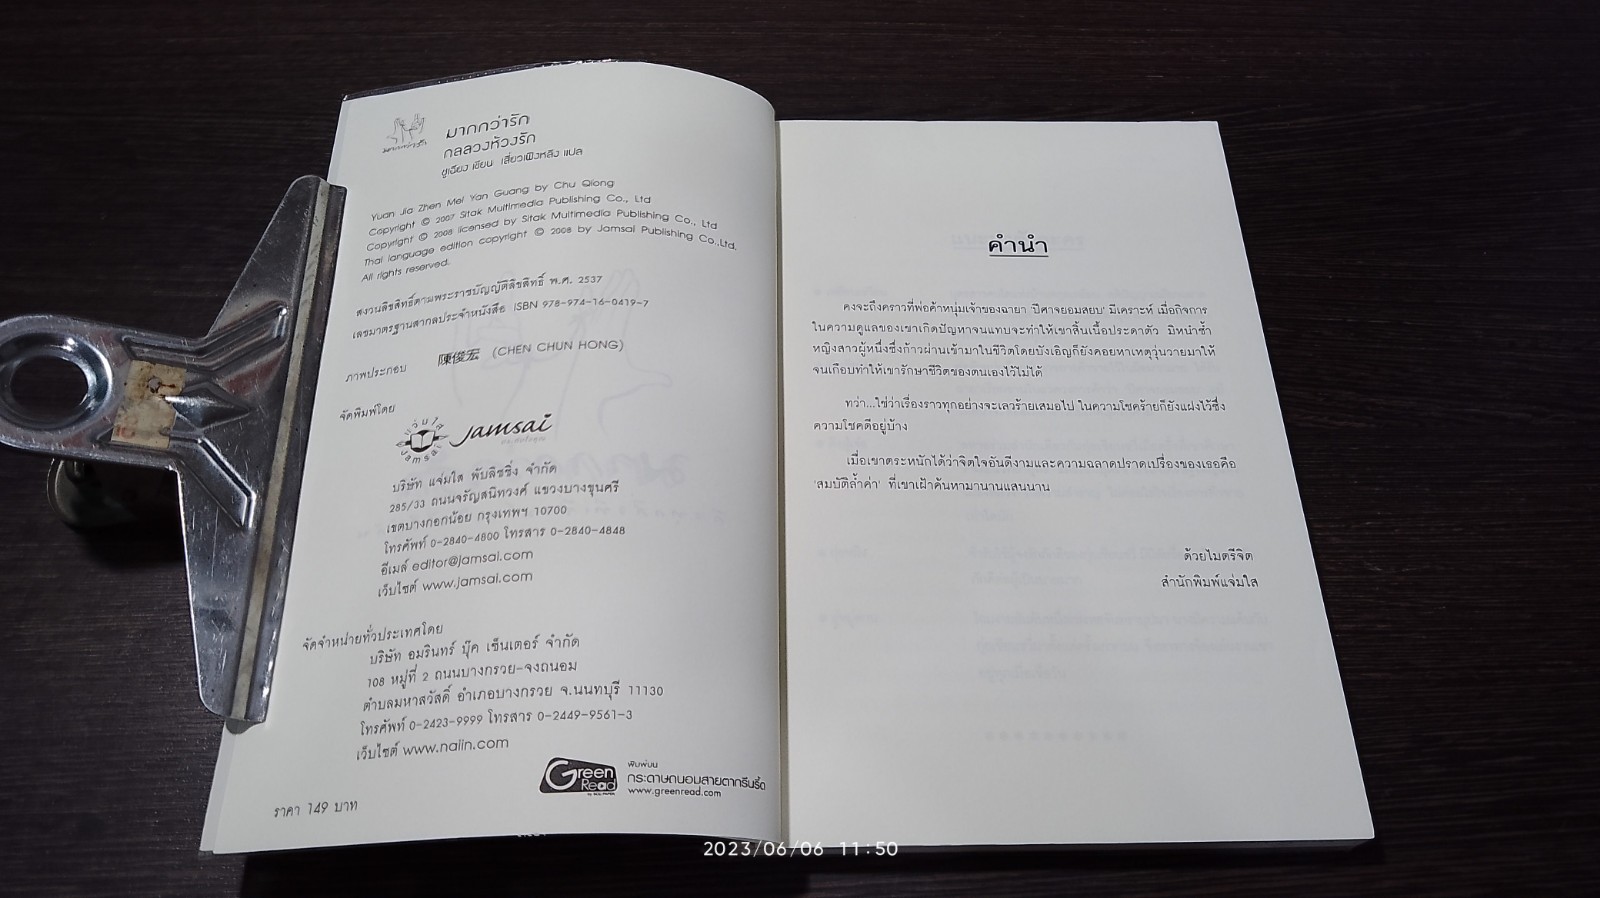 มากกว่ารัก
มากกว่ารัก
กลลวงห้วงรัก
ยูเฉียง เขียน เสี่ยวเฝิงหลิง แปล
Yuan Jia Zhen Mei Yan Guang by Chu Qiong
Copyright © 2007 Sitak Multimedia Publishing Co., Ltd
Copyright © 2008 licensed by Sitak Multimedia Publishing Co., Ltd
Thai language edition copyright © 2008 by Jamsai Publishing Co.,Ltd.
All rights reserved.
สงวนลิขสิทธิ์ตามพระราชบัญญัติลิขสิทธิ์ พ.ศ. 2537
เลขมาตรฐานสากลประจำหนังสือ ISBN 978-974-16-0419-7
ภาพประกอบ 陳俊宏 (CHEN CHUN HONG)
จัดพิมพ์โดย
แจ่มใส
Jamsai
Jamsai
บริษัท แจ่มใส พับลิชชิ่ง จำกัด
285/33 ถนนจรัญสนิทวงศ์ แขวงบางขุนศรี
เขตบางกอกน้อย กรุงเทพฯ 10700
โทรศัพท์ 0-2840-4800 โทรสาร 0-2840-4848
อีเมล์ editor@jamsai.com
เว็บไซต์ www.jamsai.com
จัดจำหน่ายทั่วประเทศโดย
บริษัท อมรินทร์ บุ๊ค เซ็นเตอร์ จำกัด
108 หมู่ที่ 2 ถนนบางกรวย-จงถนอม
ตำบลมหาสวัสดิ์ อำเภอบางกรวย จ.นนทบุรี 11130
โทรศัพท์ 0-2423-9999 โทรสาร 0-2449-9561-3
เว็บไซต์ www.naiin.com
Green
Read
พิมพ์บน
กระดาษถนอมสายตากรีนรี้ด
www.greenread.com
ราคา 149 บาท
คำนำ
คงจะถึงคราวที่พ่อค้าหนุ่มเจ้าของฉายา 'ปีศาจยอมสยบ' มีเคราะห์ เมื่อกิจการ
ในความดูแลของเขาเกิดปัญหาจนแทบจะทำให้เขาสิ้นเนื้อประดาตัว มิหนำซ้ำ
หญิงสาวผู้หนึ่งซึ่งก้าวผ่านเข้ามาในชีวิตโดยบังเอิญก็ยังคอยหาเหตุวุ่นวายมาให้
จนเกือบทำให้เขารักษาชีวิตของตนเองไว้ไม่ได้
ทว่า...ใช่ว่าเรื่องราวทุกอย่างจะเลวร้ายเสมอไป ในความโชคร้ายก็ยังแฝงไว้ซึ่ง
ความโชคดีอยู่บ้าง
เมื่อเขาตระหนักได้ว่าจิตใจอันดีงามและความฉลาดปราดเปรื่องของเธอคือ
'สมบัติล้ำค่า' ที่เขาเฝ้าค้นหามานานแสนนาน
ด้วยไมตรีจิต
สำนักพิมพ์แจ่มใส
2023/06/06 11:50